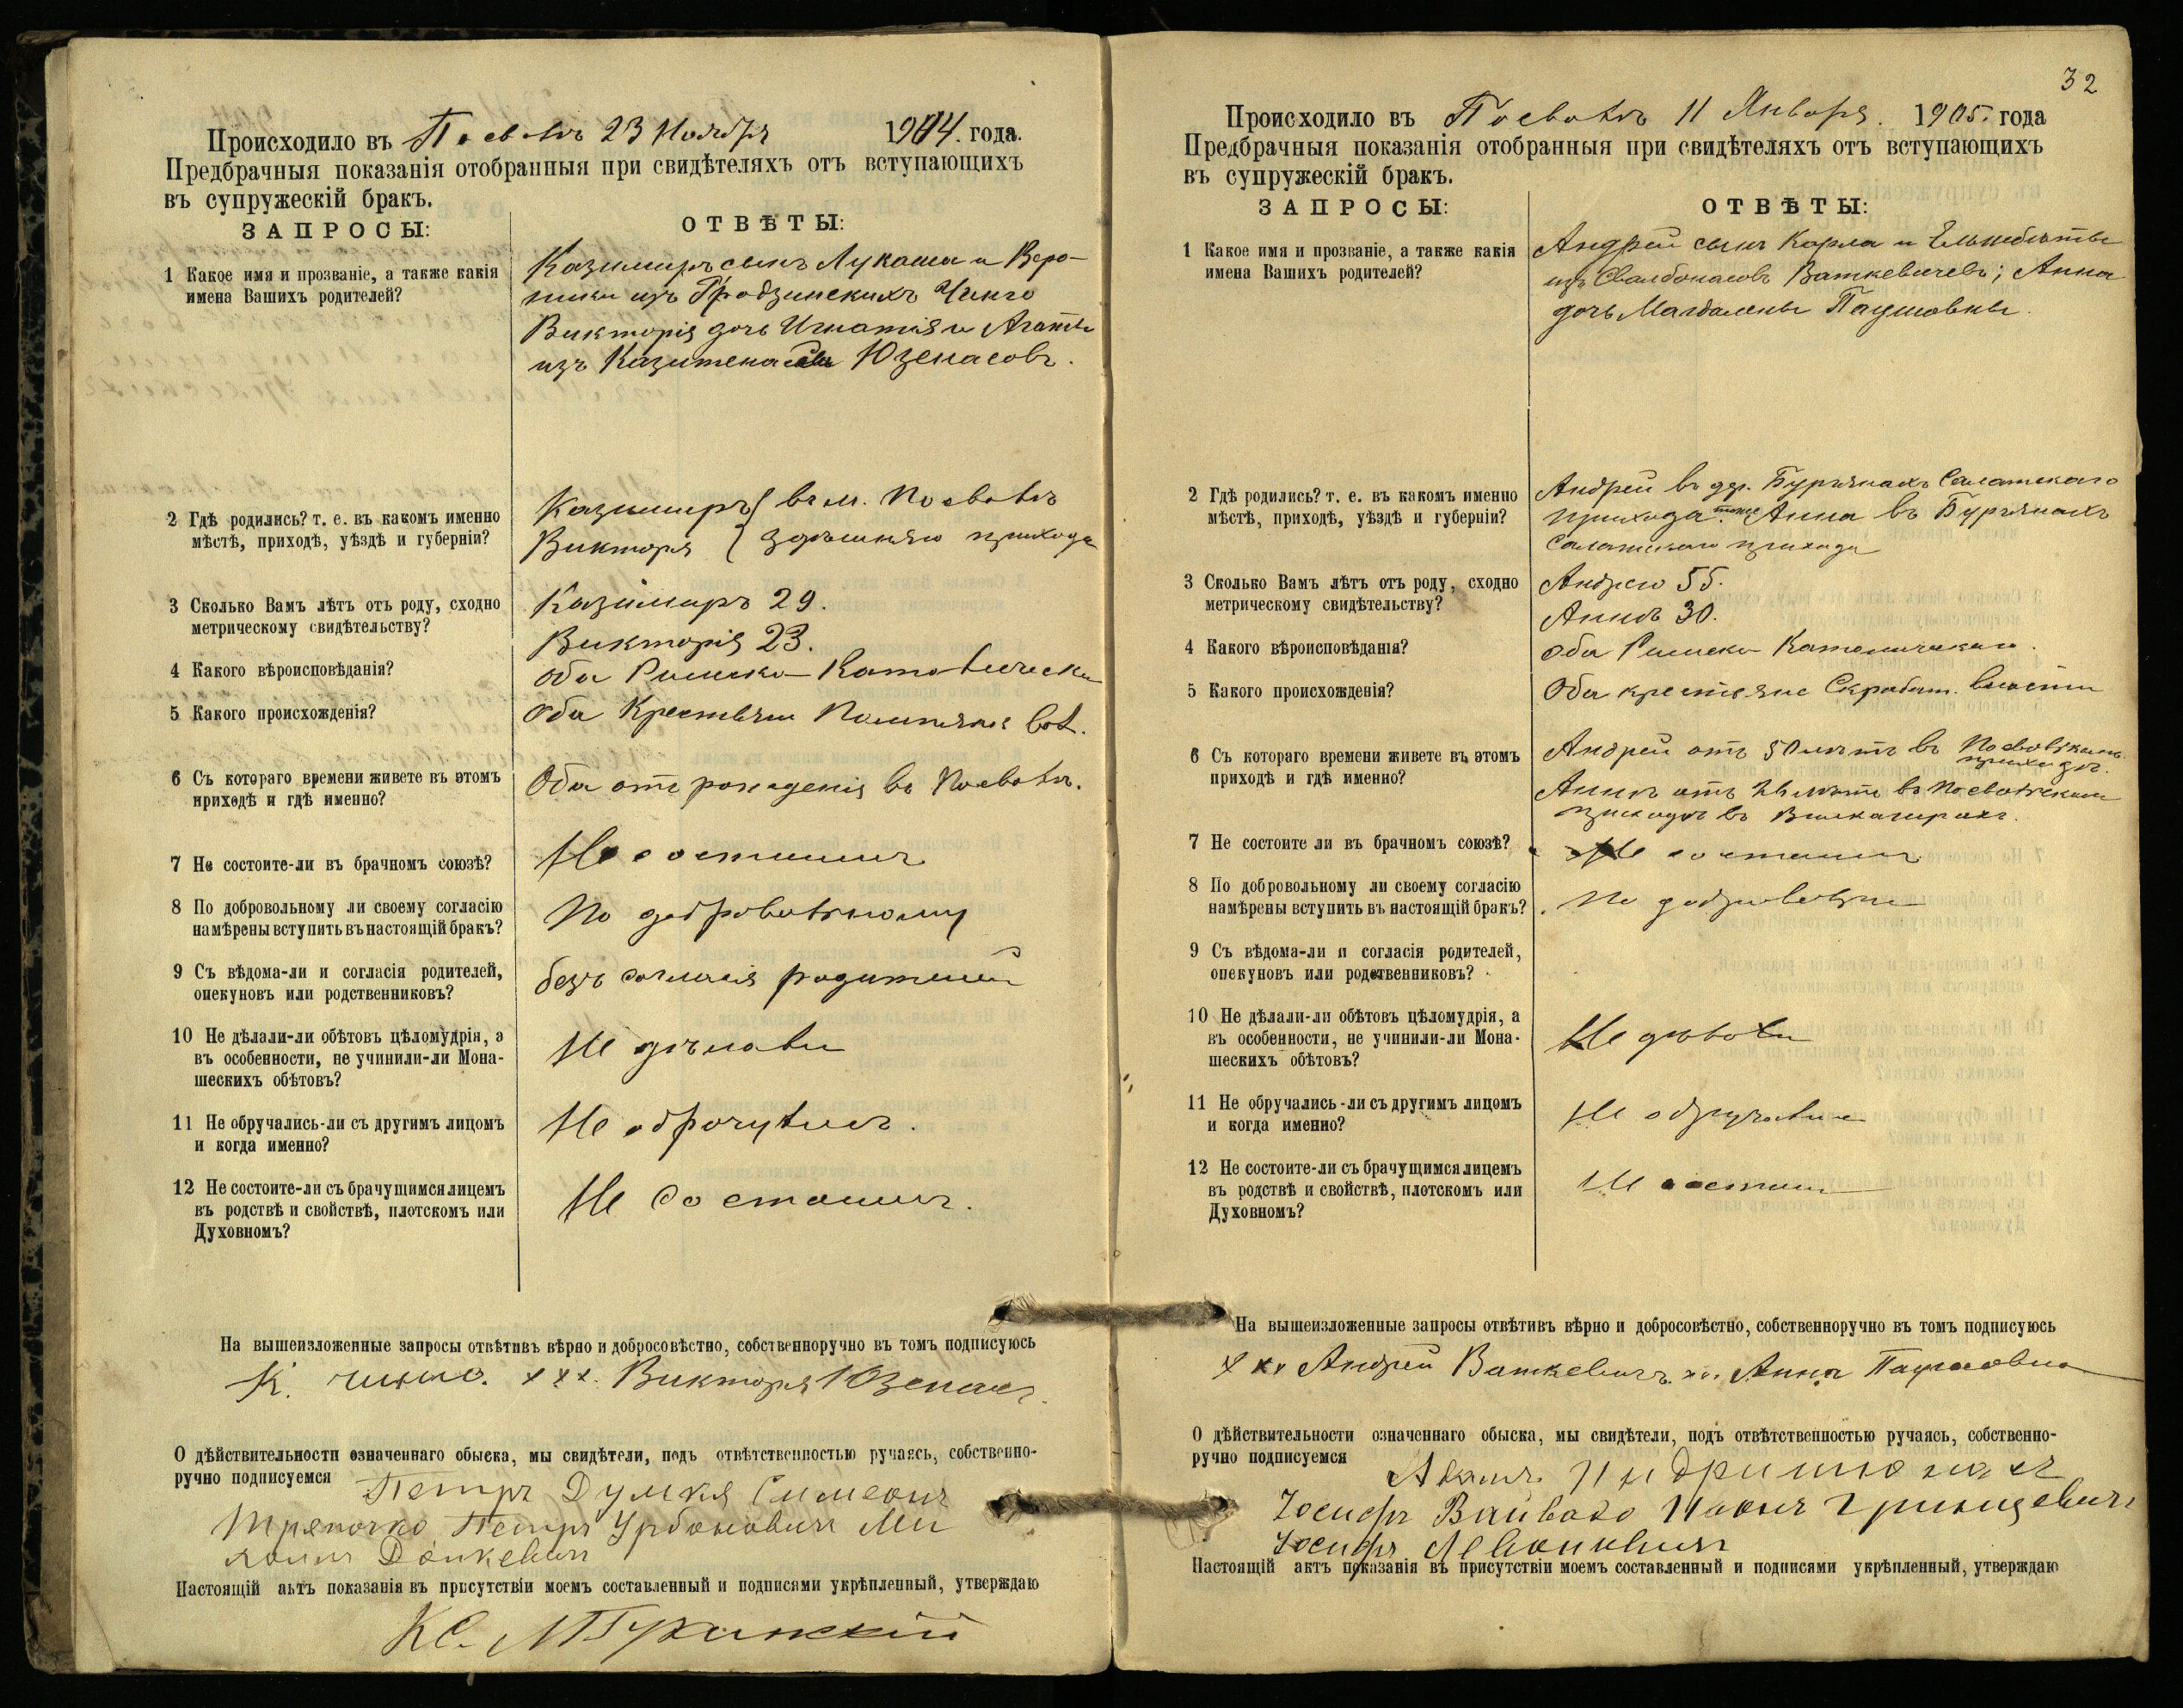 Происходило въ Посволѣ 23 Ноября 1904. года.
Предбрачныя показанія отобранныя при свидѣтеляхъ отъ вступающихъ
въ супружескій бракъ.
ЗАПРОСЫ:
ОТВѢТЫ:
1 Какое имя и прозваніе, а также какія
имена Вашихъ родителей?
Казимиръ сынъ Лукаша и Веро-
ники изъ Гродзинскихъ Чинго
Викторія дочь Игнатія и Агаты
изъ Юзенасовъ.
2 Гдѣ родились? т. е. въ какомъ именно
мѣстѣ, приходѣ, уѣздѣ и губерніи?
Казимиръ въ м. Посволѣ
Викторія здѣшняго прихода
3 Сколько Вамъ лѣтъ отъ роду, сходно
метрическому свидѣтельству?
Казимиръ 29.
Викторія 23.
4 Какого вѣроисповѣданія?
Оба Римско-Католическ
5 Какого происхожденія?
Оба Крестьяне вол.
6 Съ котораго времени живете въ этомъ
приходѣ и гдѣ именно?
Оба отъ рожденія въ Посволѣ.
7 Не состоите-ли въ брачномъ союзѣ?
Не состоимъ
8 По добровольному ли своему согласію
намѣрены вступить въ настоящій бракъ?
По добровольному
9 Съ вѣдома-ли и согласія родителей,
опекуновъ или родственниковъ?
безъ согласія родителей
10 Не дѣлали-ли обѣтовъ цѣломудрія, а
въ особенности, не учинили-ли Мона-
шескихъ обѣтовъ?
Не дѣлали
11 Не обручались-ли съ другимъ лицомъ
и когда именно?
Не
12 Не состоите-ли съ брачущимся лицемъ
въ родствѣ и свойствѣ, плотскомъ или
Духовномъ?
Не состоимъ.
На вышеизложенные запросы отвѣтивъ вѣрно и добросовѣстно, собственноручно въ томъ подписуюсь
К. xxx. Викторія Юзенасъ
О дѣйствительности означеннаго обыска, мы свидѣтели, подъ отвѣтственностью ручаясь, собственно-
ручно подписуемся Петръ Думкя Симеонъ
Петръ Урбоновичъ
Настоящій актъ показанія въ присутствіи моемъ составленный и подписями укрѣпленный, утверждаю
КС.
32
Происходило въ Посволѣ 11 Января. 1905. года
Предбрачныя показанія отобранныя при свидѣтеляхъ отъ вступающихъ
въ супружескій бракъ.
ЗАПРОСЫ:
ОТВѢТЫ:
1 Какое имя и прозваніе, а также какія
имена Вашихъ родителей?
Андрей сынъ Карла и Ельжбеты
изъ Ваткевичевъ; Анна
дочь Магдалены Паушовны.
2 Гдѣ родились? т. е. въ какомъ именно
мѣстѣ, приходѣ, уѣздѣ и губерніи?
Андрей въ дер. Салатскаго
прихода. Анна въ
Салатскаго прихода
3 Сколько Вамъ лѣтъ отъ роду, сходно
метрическому свидѣтельству?
Андрею 55.
Аннѣ 30.
4 Какого вѣроисповѣданія?
Оба Римско Католическаго.
5 Какого происхожденія?
Оба крестьяне Скробат. волости
6 Съ котораго времени живете въ этомъ
приходѣ и гдѣ именно?
Андрей отъ 50 лѣтъ въ Посвольскомъ
приходѣ.
Анна отъ лѣтъ въ Посвольскомъ
приходѣ въ
7 Не состоите ли въ брачномъ союзѣ?
Не состоимъ
8 По добровольному ли своему согласію
намѣрены вступить въ настоящій бракъ?
По
9 Съ вѣдома-ли и согласія родителей,
опекуновъ или родственниковъ?
10 Не дѣлали-ли обѣтовъ цѣломудрія, а
въ особенности, не учинили-ли Мона-
шескихъ обѣтовъ?
Не дѣлали
11 Не обручались-ли съ другимъ лицомъ
и когда именно?
Не обручались
12 Не состоите-ли съ брачущимся лицемъ
въ родствѣ и свойствѣ, плотскомъ или
Духовномъ?
Не
На вышеизложенные запросы отвѣтивъ вѣрно и добросовѣстно, собственноручно въ томъ подписуюсь
xxx Андрей Ваткевичъ. Анна Паушовна
О дѣйствительности означеннаго обыска, мы свидѣтели, подъ отвѣтственностью ручаясь, собственно-
ручно подписуемся
Іосифъ
Іосифъ
Настоящій актъ показанія въ присутствіи моемъ составленный и подписями укрѣпленный, утверждаю